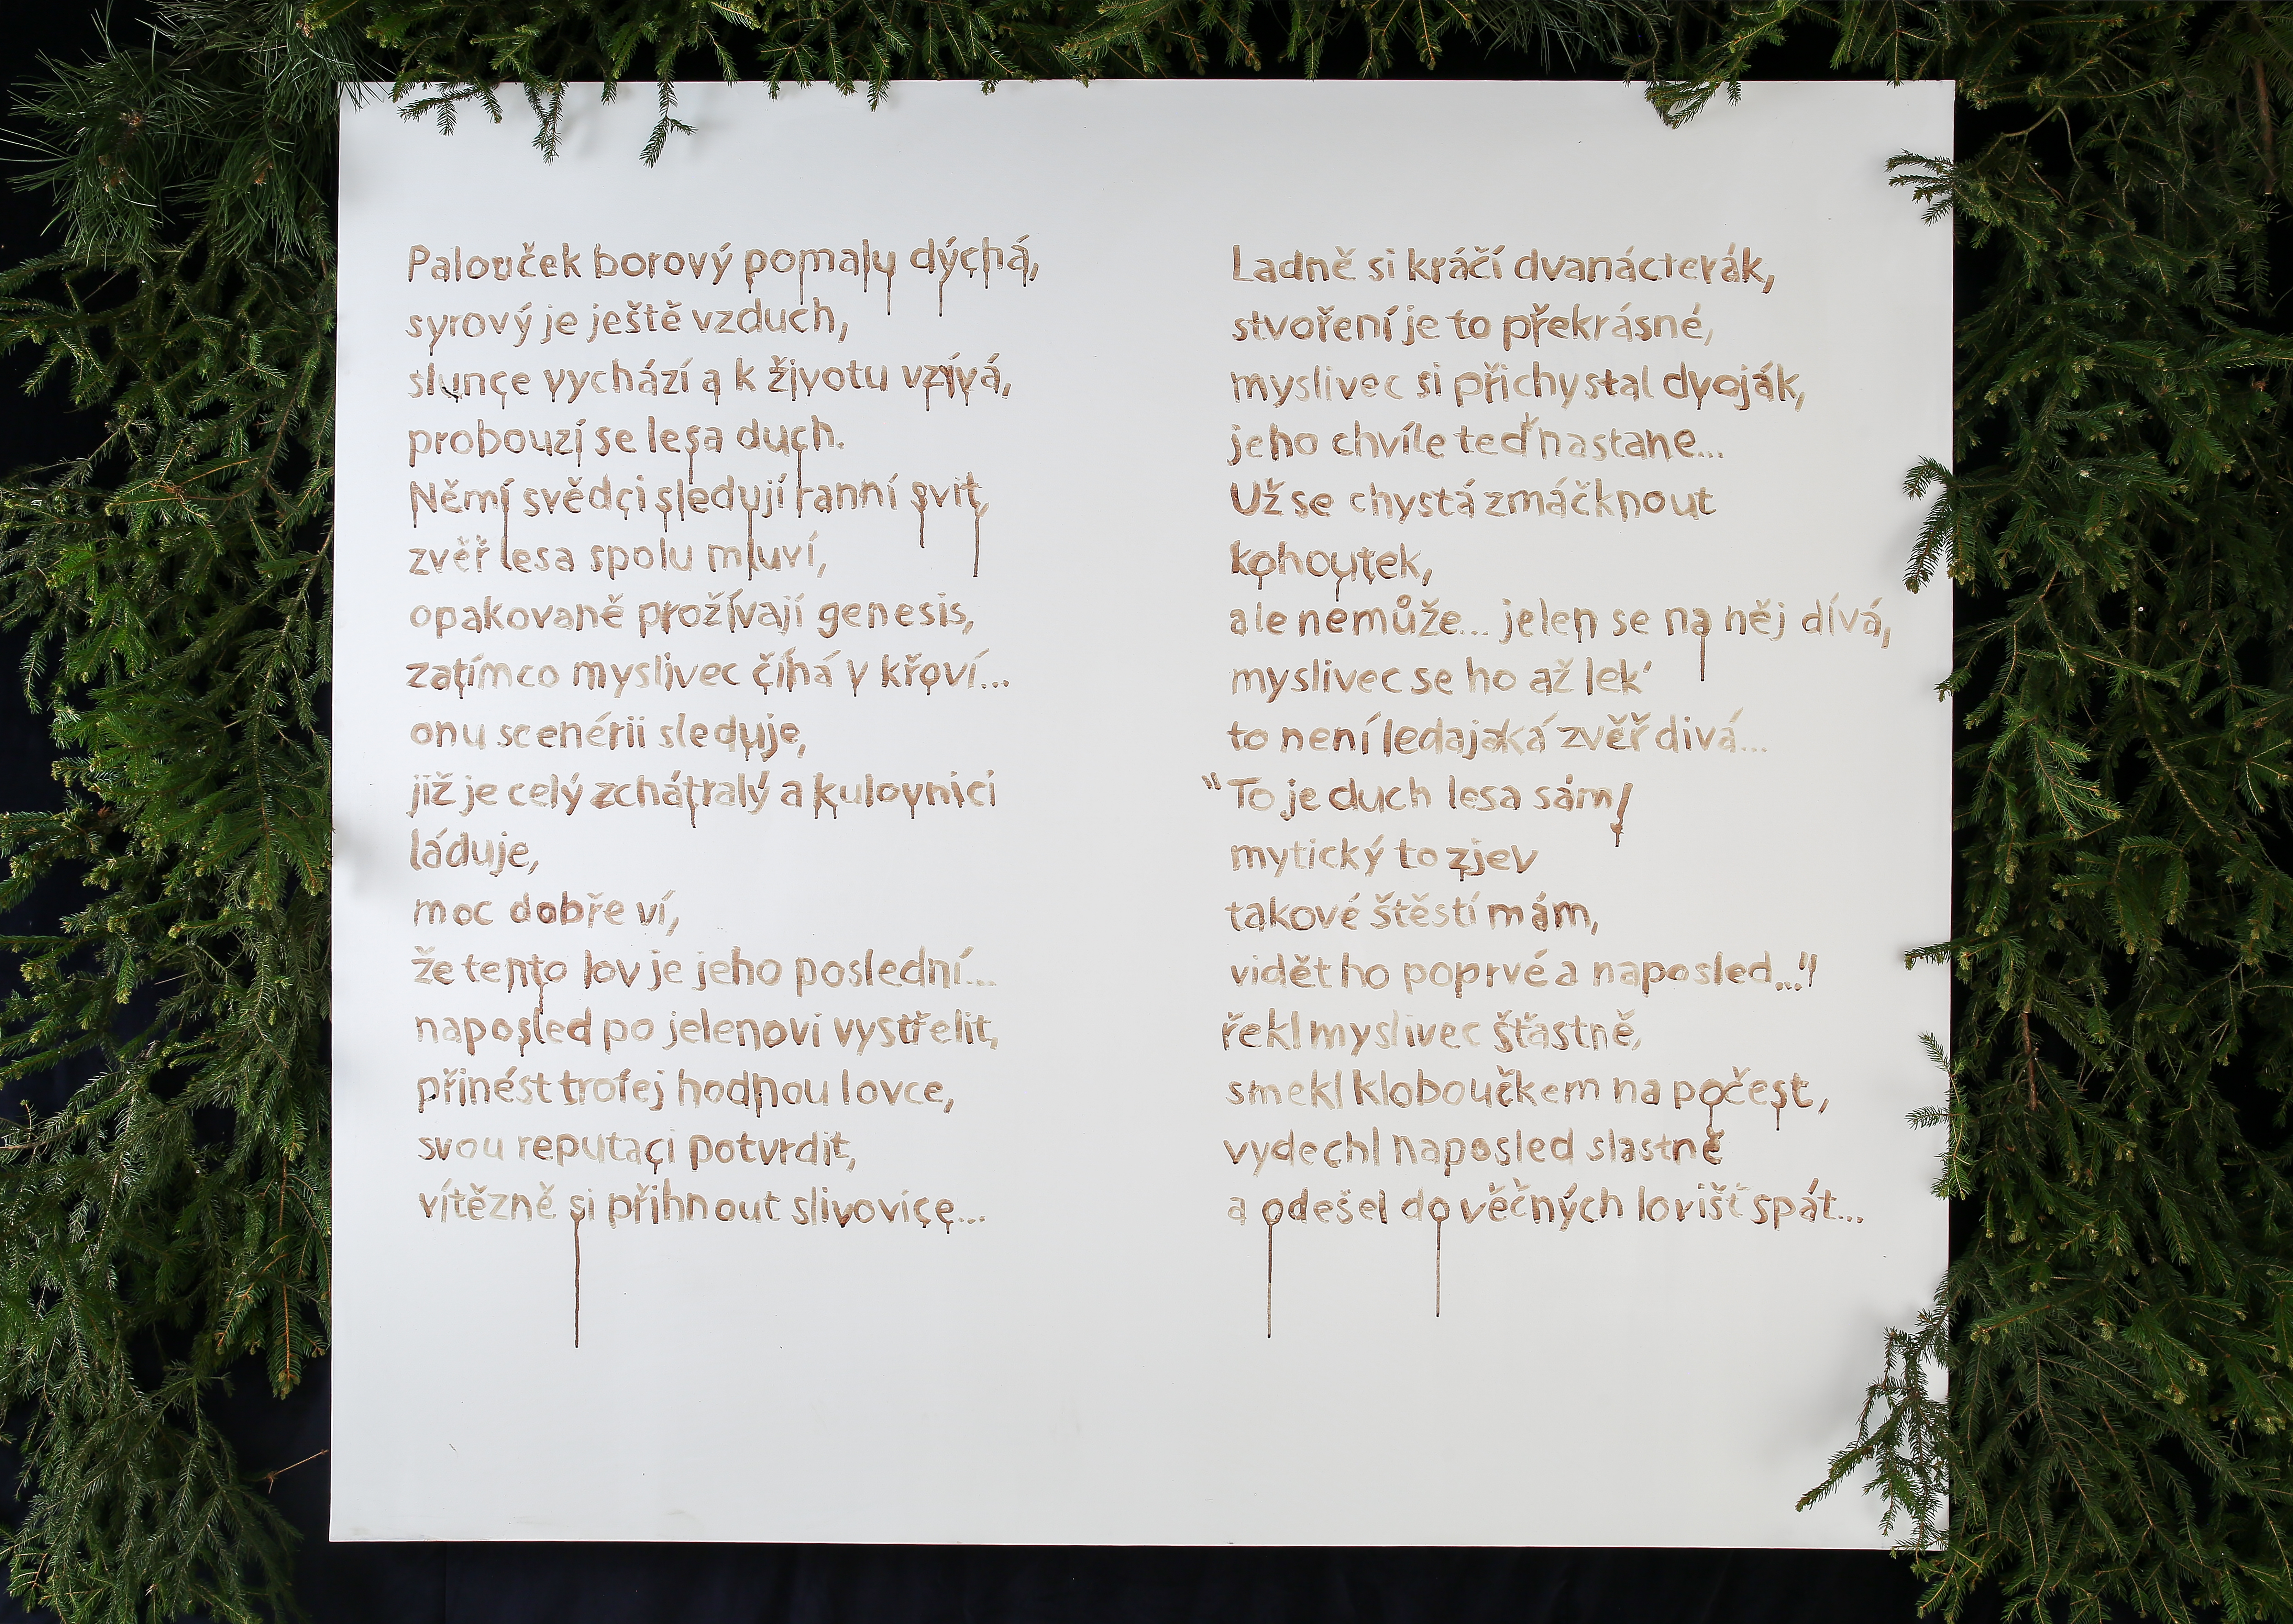 Palouček borový pomalu dýchá,
syrový je ještě vzduch,
slunce vychází a k životu vzívá,
probouzí se lesa duch.
Němí svědci sledují ranní svit,
zvěř lesa spolu mluví,
opakovaně prožívají genesis,
zatímco myslivec číhá v křoví...
onu scenérii sleduje,
již je celý zchátralý a kulovnici
láduje,
moc dobře ví,
že tento lov je jeho poslední...
naposled po jelenovi vystřelit,
přinést trofej hodnou lovce,
svou reputaci potvrdit,
vítězně si přihnout slivovice...
Ladně si kráčí dvanácterák,
stvoření je to překrásné,
myslivec si přichystal dvoják,
jeho chvíle teď nastane...
Už se chystá zmáčknout
kohoutek,
ale nemůže... jelen se na něj dívá,
myslivec se ho až lek'
to není ledajaká zvěř divá...
"To je duch lesa sám!
mytický to zjev
takové štěstí mám,
vidět ho poprvé a naposled..."
řekl myslivec šťastně,
smekl kloboučkem na počest,
vydechl naposled slastně
a odešel do věčných lovišť spát...